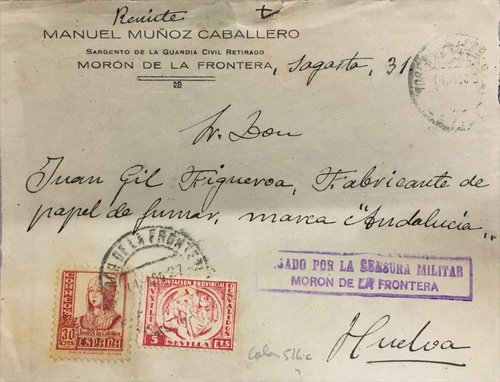 Remite
MANUEL MUÑOZ CABALLERO
SARGENTO DE LA GUARDIA CIVIL RETIRADO
MORÓN DE LA FRONTERA, Sagasta, 31
Sr. Don
Juan Gil Figueroa, Fabricante de
papel de fumar, marca "Andalucía"
DE LA FRONTERA
JADO POR LA CENSURA MILITAR
MORON DE LA FRONTERA
CORREOS
Isabel la Católica
30 CTS
ESPAÑA
DIPUTACIÓN PROVINCIAL
DESVALIDOS
5 SEVILLA CTS
Huelva